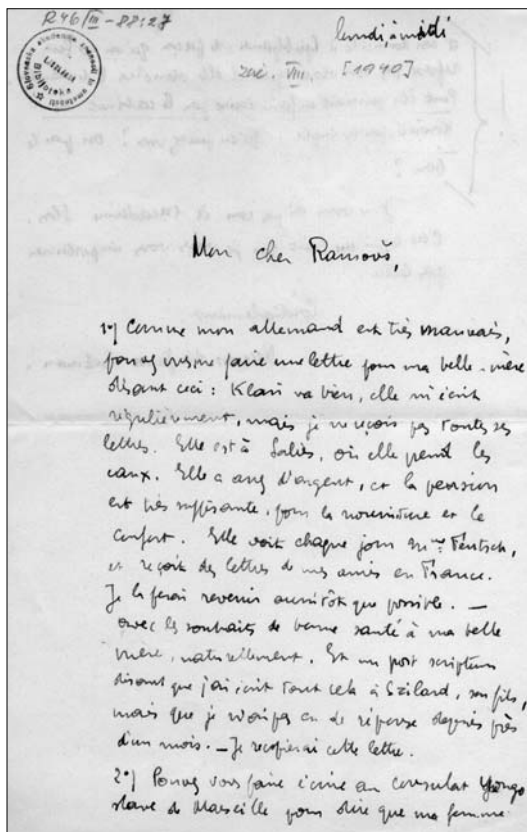 R46/III-88:27
lundi, à midi
zač. VIII. [1940]
Slovenska akademija znanosti in umetnosti
Biblioteka
Mon cher Ramovš,
1°/ Comme mon allemand est très mauvais,
pouvez vous me faire une lettre pour ma belle-mère
disant ceci : Klari va bien, elle m'écrit
régulièrement, mais je ne reçois pas toutes ses
lettres. Elle est à Salies, où elle prend les
eaux. Elle a assez d'argent, et la pension
est très suffisante, pour la nourriture et le
confort. Elle voit chaque jour Mme Teutsch,
et reçoit des lettres de mes amis en France.
Je la ferai revenir aussitôt que possible. —
avec les souhaits de bonne santé à ma belle
mère, naturellement. Et un post scriptum
disant que j'ai écrit tout cela à Szilard, son fils,
mais que je n'ai pas eu de réponse depuis près
d'un mois. — Je recopierai cette lettre.
2°/ Pouvez vous faire écrire au consulat Yougo
slave de Marseille pour dire que ma femme